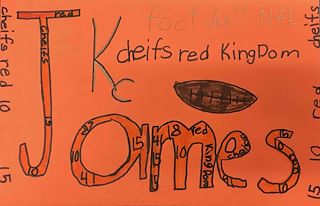 football NFL
Kc
cheifs red KingDom
James
red
cheifs
cheifs red 10 15
cheifs red 10 15
15 18 red
10
14
KingDom
cheifs
15